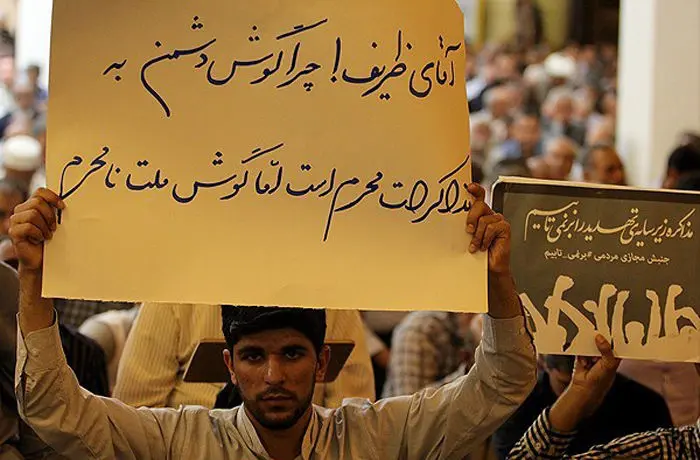 آقای ظریف! چرا گوش دشمن به
مذاکرات محرم است اما گوش ملت نامحرم
مذاکره زیر سایه‌ی تهدید را بر نمی تابیم
جنبش مجازی مردمی #برنمی_تابیم